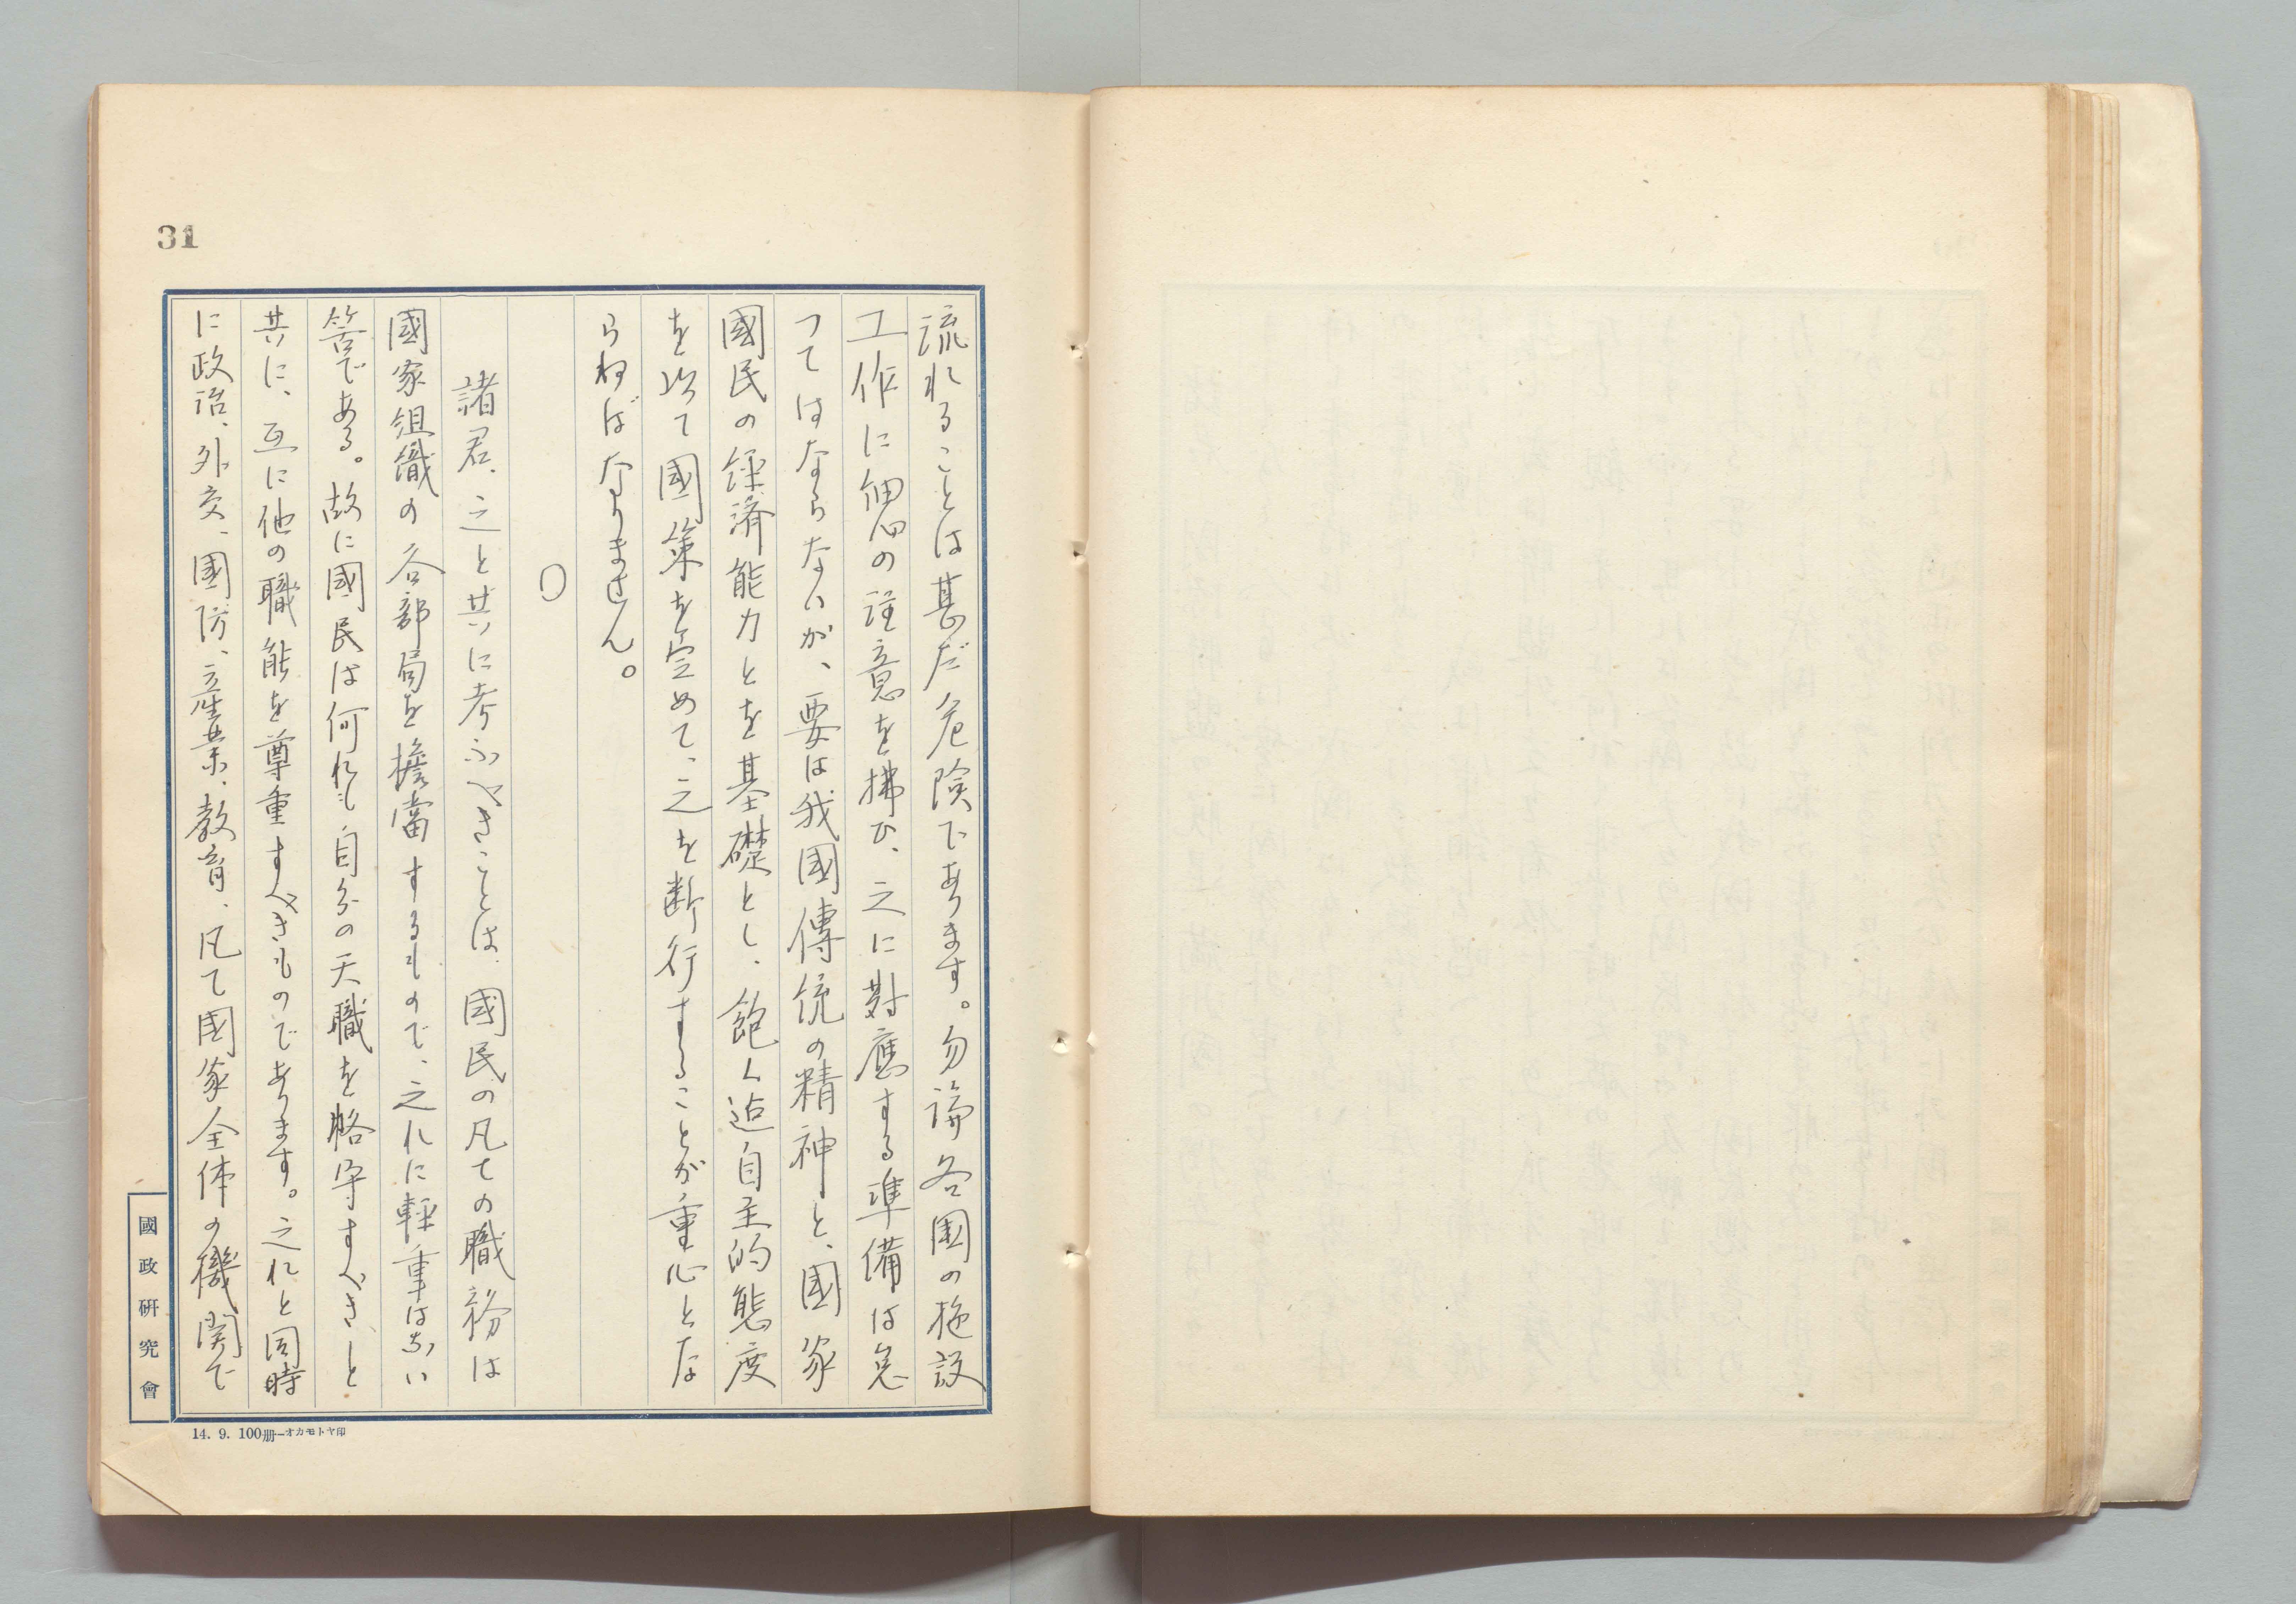 31
流れることは甚だ危険であります。勿論各国の施設
工作に細心の注意を拂ひ、之に對應する準備は怠
つてはならないが、要は我國傳統の精神と、國家
國民の経済能力とを基礎とし、飽く迄自主的態度
を以て國策を定めて、之を断行することが重心とな
らねばなりません。
〇
諸君、之と共に考ふべきことは、國民の凡ての職務は
國家組織の各部局を擔當するもので、之れに輕重はない
筈である。故に國民は何れも自分の天職を恪守すべきと
共に、互に他の職能を尊重すべきものであります。之れと同時
に政治、外交、國防、産業、教育、凡て國家全体の機関で
國政研究會
14. 9. 100册—オカモトヤ印